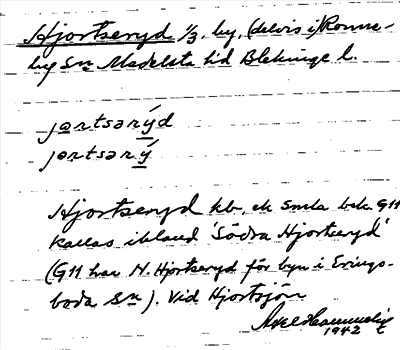 Hjortseryd 1/3, by, (delvis i) Ronne-
by Sn Medelsta hd Blekinge l.
jɵrtsərýd
jɵrtsərý
Hjortseryd hb, ek. smla bek. G11
kallas ibland 'Södra Hjortseryd'
(G11 har N. Hjortseryd för byn i Erings-
boda Sn). Vid Hjortsjön
1942